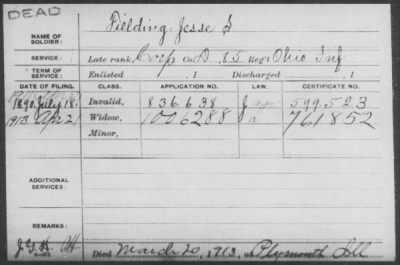 DEAD
NAME OF SOLDIER: Fielding, Jesse S
SERVICE: Late rank, Corp Co. D, 85 Reg't Ohio Inf
TERM OF SERVICE: Enlisted , 1 Discharged , 1
DATE OF FILING. CLASS. APPLICATION NO. LAW. CERTIFICATE NO.
1890, July 18. Invalid, 836638 599523
1913 Apr 21 Widow, 1006288 761852
Minor,
ADDITIONAL SERVICES:
REMARKS:
Died March 20, 1913, at Plymouth Ill